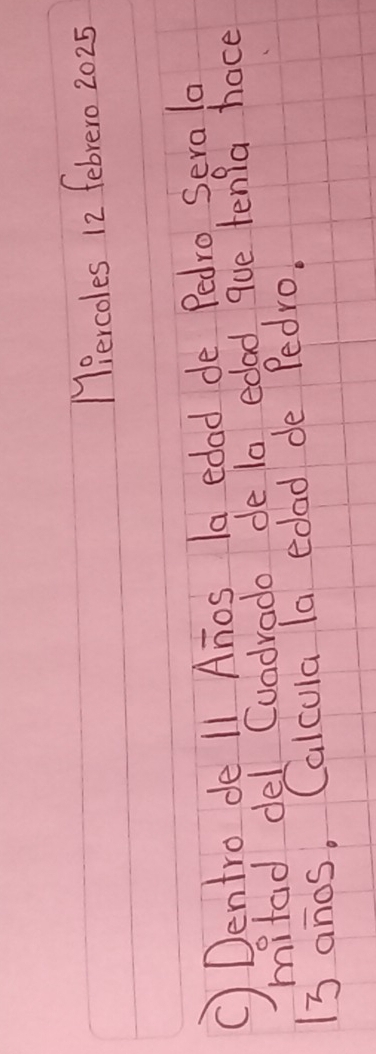 Miercoles 12 febrero 2025
c) Dentro de 11 Años la edad de Pedro Sera la
mitad del Cuadrado de la edad que tenia hace
13 años. Calcula la edad de Pedro.